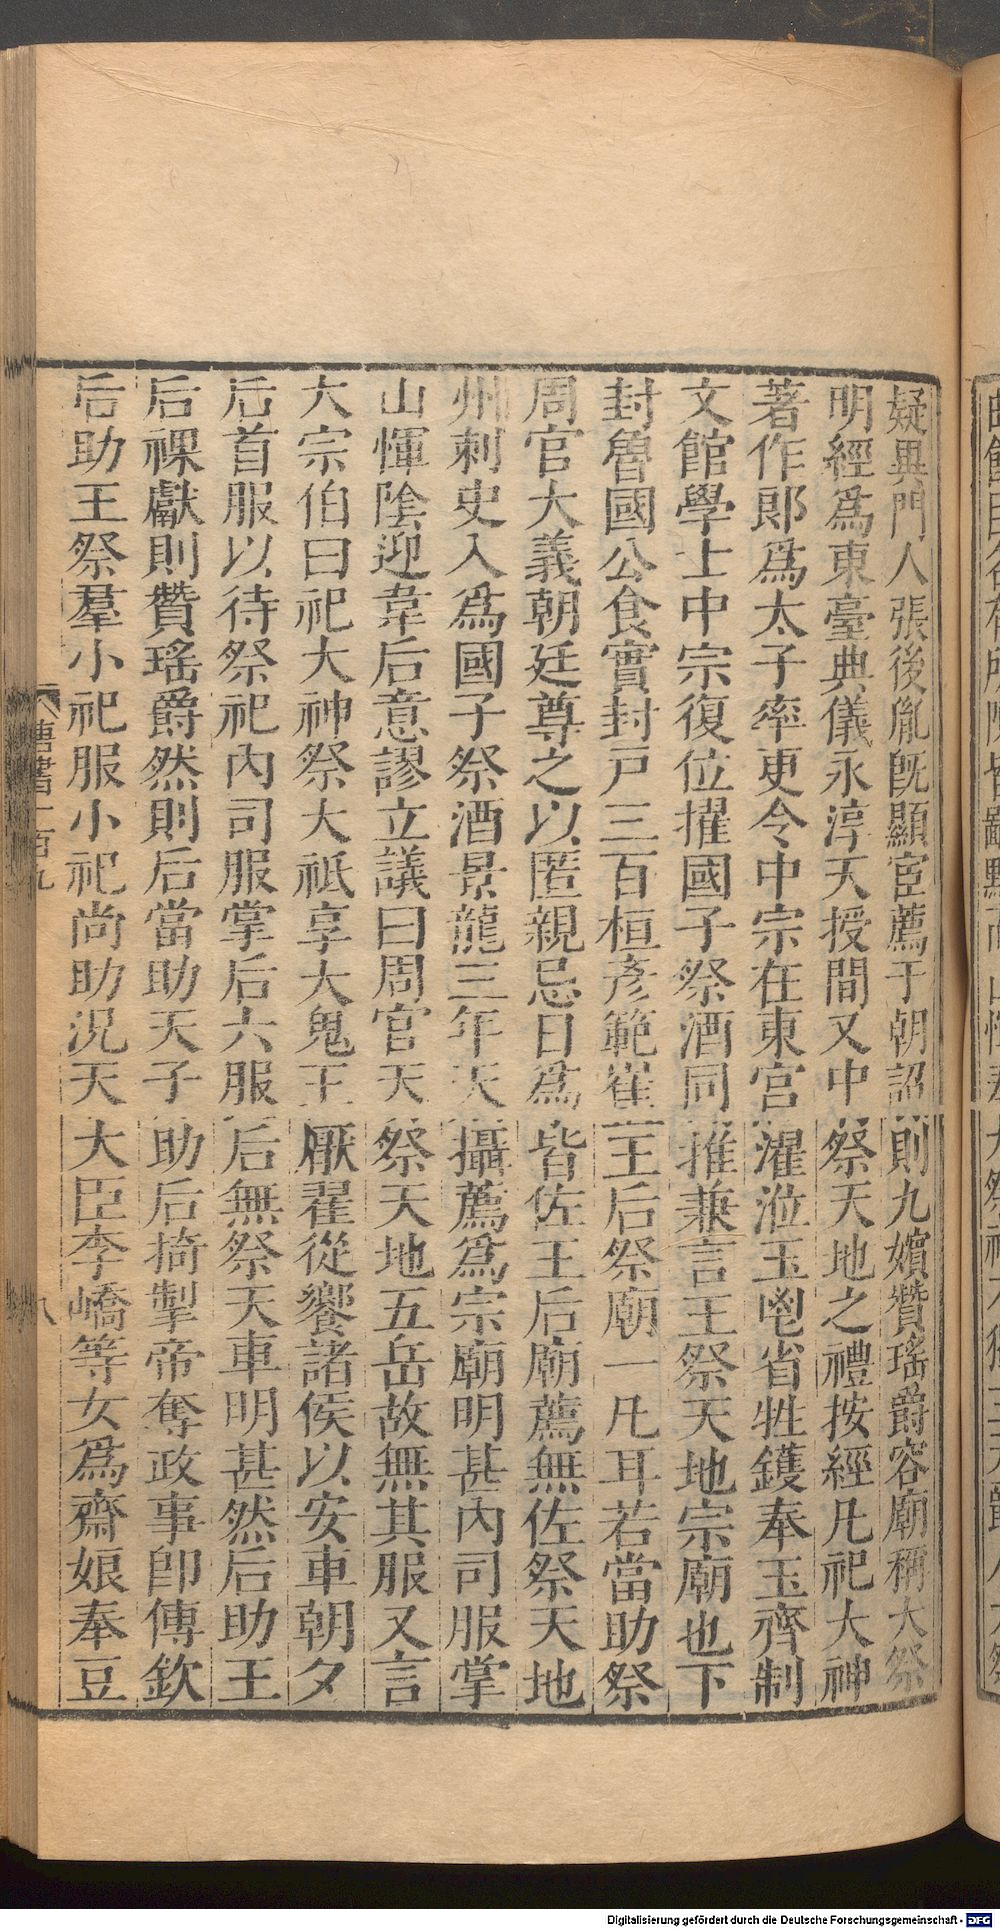 疑異門人張後胤旣顯宦薦于朝詔則九嬪贊瑤爵容廟稱大祭
明經爲東臺典儀永淳天授間又中祭天地之禮按經凡祀大神
著作郎爲太子率更令中宗在東宮濯涖玉鬯省牲鑊奉玉齊制
文館學士中宗復位擢國子祭酒同推兼言王祭天地宗廟也下
封魯國公食實封戸三百桓彥範崔王后祭廟一凡耳若當助祭
周官大義朝廷尊之以匿親忌日爲皆佐王后廟薦無佐祭天地
州刺史入爲國子祭酒景龍三年天攝薦爲宗廟明甚內司服掌
山惲陰迎韋后意謬立議曰周官天祭天地五岳故無其服又言
大宗伯曰祀大神祭大祇享大鬼王厭翟從饗諸侯以安車朝夕
后首服以待祭祀內司服掌后六服后無祭天車明甚然后助王
后祼獻則贊瑤爵然則后當助天子助后掎掣帝奪政事卽傳欽
后助王祭羣小祀服小祀尚助況天大臣李嶠等女爲齋娘奉豆
唐書一百九 八
Digitalisierung gefördert durch die Deutsche Forschungsgemeinschaft - DFG